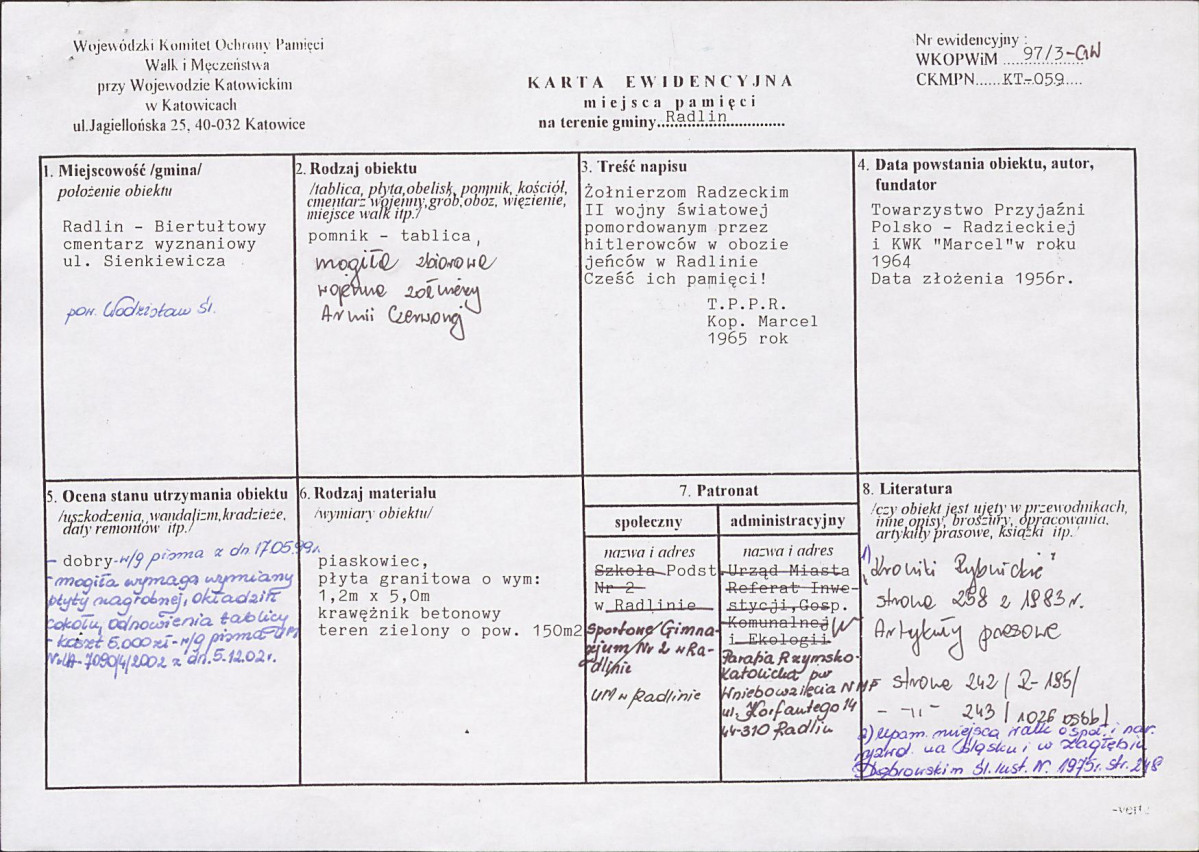 Wojewódzki Komitet Ochrony Pamięci
Walk i Męczeństwa
przy Wojewodzie Katowickim
w Katowicach
ul.Jagiellońska 25, 40-032 Katowice
KARTA EWIDENCYJNA
miejsca pamięci
na terenie gminy Radlin
Nr ewidencyjny :
WKOPWiM ....97/3-GW
CKMPN......KT-059....
1. Miejscowość /gmina/
położenie obiektu
Radlin - Biertułtowy
cmentarz wyznaniowy
ul. Sienkiewicza
pow. Wodzisław Śl.
2. Rodzaj obiektu
/tablica, płyta,obelisk, pomnik, kościół,
cmentarz wojenny,grób,obóz, więzienie,
miejsce walk itp./
pomnik - tablica,
mogiła zbiorowa
wojenna żołnierzy
Armii Czerwonej
3. Treść napisu
Żołnierzom Radzeckim
II wojny światowej
pomordowanym przez
hitlerowców w obozie
jeńców w Radlinie
Cześć ich pamięci!
T.P.P.R.
Kop. Marcel
1965 rok
4. Data powstania obiektu, autor,
fundator
Towarzystwo Przyjaźni
Polsko - Radzieckiej
i KWK "Marcel"w roku
1964
Data złożenia 1956r.
5. Ocena stanu utrzymania obiektu
/uszkodzenia, wandalizm,kradzieże,
daty remontów itp./
- dobry-w/g pisma z dn 17.05.99r.
- mogiła wymaga wymiany
płyty nagrobnej, okładzin
cokołu, odnowienia tablicy
- koszt 5.000 zł - w/g pisma UM
7090/4/2002 z dn. 5.12.02r.
6. Rodzaj materiału
/wymiary obiektu/
piaskowiec,
płyta granitowa o wym:
1,2m x 5,0m
krawężnik betonowy
teren zielony o pow. 150m2
7. Patronat
społeczny
nazwa i adres
Szkoła Podst.
Nr 2
w Radlinie
Sportowe Gimna-
zjum Nr 2 w Ra-
dlinie
UM w Radlinie
administracyjny
nazwa i adres
Urząd Miasta
Referat Inwe-
stycji,Gosp.
Komunalnej
i Ekologii
Parafia Rzymsko-
Katolicka pw
Wniebowzięcia NMP
ul. Korfantego 14
44-310 Radlin
8. Literatura
/czy obiekt jest ujęty w przewodnikach,
inne opisy, broszury, opracowania,
artykuły prasowe, książki itp./
1)
"Kroniki Rybnickie"
strona 258 z 1983r.
Artykuły prasowe
strona 242 / R-195/
- -"- 243 / 1026 osób/
2) Upam. miejsca walk o społ. i nar.
wyzwol. na Śląsku i w Zagłębiu
Dąbrowskim Śl. Inst. N. 1975r. str. 248